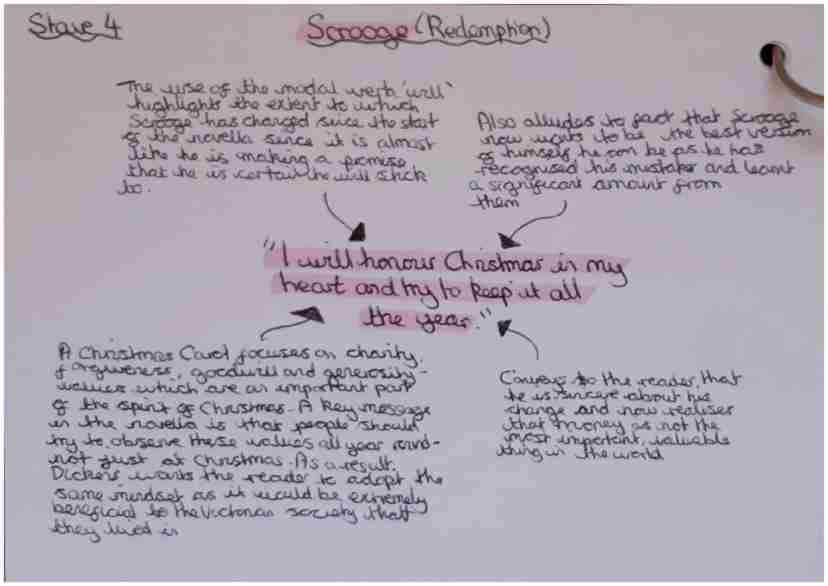 Stave 4
Scrooge (Redemption)
The use of the modal verb 'will'
highlights the extent to which
Scrooge has changed since the start
of the novella since it is almost
like he is making a promise
that he is certain he will stick
to.
Also alludes to fact that Scrooge
now wants to be the best version
of himself he can be as he has
recognised his mistakes and learnt
a significant amount from
them
"I will honour Christmas in my
heart and try to keep it all
the year."
A Christmas Carol focuses on charity,
forgiveness, goodwill and generosity-
values which are an important part
of the spirit of Christmas. A key message
in the novella is that people should
try to observe these values all year round-
not just at Christmas. As a result,
Dickens wants the reader to adopt the
same mindset as it would be extremely
beneficial to the Victorian society that
they lived in
Conveys to the reader that
he is sincere about his
change and now realises
that money is not the
most important, valuable
thing in the world